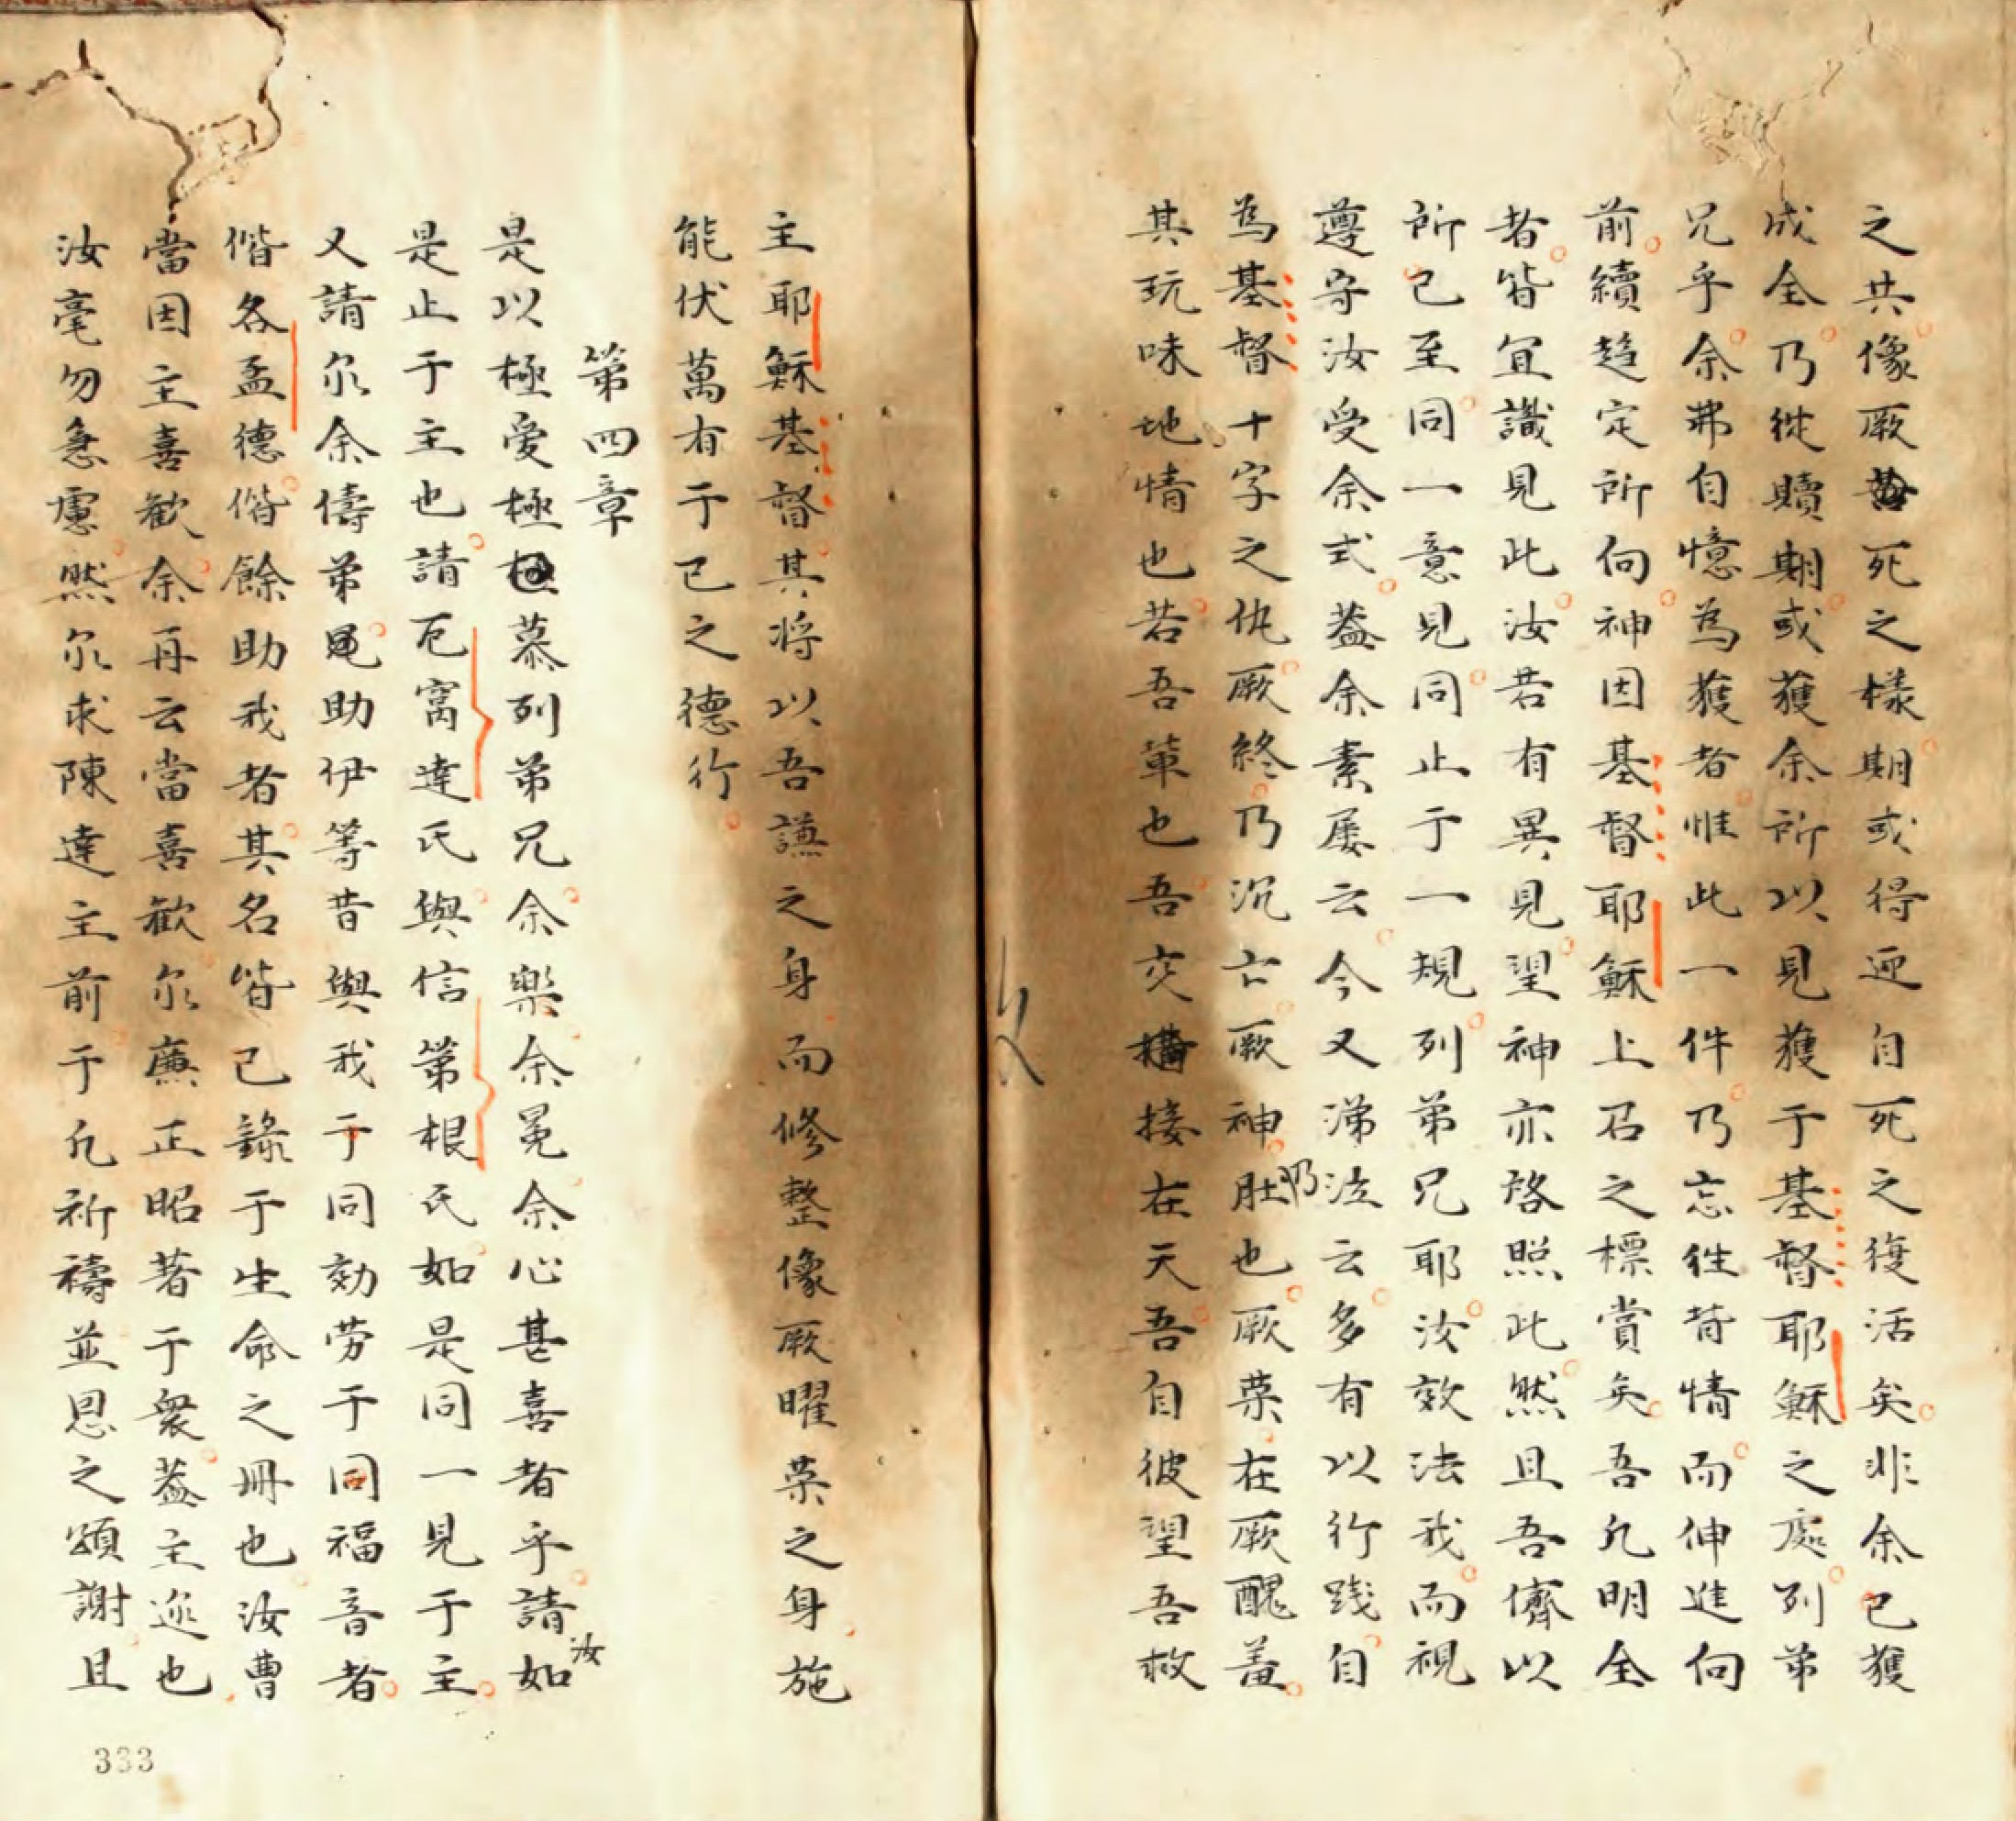 之共像厥死之樣期或得迎自死之復活矣非余已獲
成全乃從贖期或獲余所以見獲于基督耶穌之處列弟
兄乎余弗自憶為獲者惟此一件乃忘徃昔情而伸進向
前續趋定所向神因基督耶穌上召之標賞矣吾凢明全
者皆宜識見此汝若有異見望神亦啓照此然且吾儕以
所已至同一意見同止于一規列弟兄耶汝效法我而視
遵守汝受余式葢余素屡云今又涕泣云多有以行踐自
為基督十字之仇厥終乃沉亡厥神乃肚也厥荣在厥醜羞
其玩味地情也若吾軰也吾交接在天吾自彼望吾救
主耶穌基督其将以吾謙之身而修整像厥曜荣之身施
能伏萬有于已之德行
第四章
是以極愛極慕列弟兄余樂余冕余心甚喜者乎請汝如
是止于主也請厄窩達氏與信第根氏如是同一見于主
又請尔余儔弟助伊等昔與我于同効劳于同福音者
偕各孟德偕餘助我者其名皆已錄于生命之冊也汝曹
當因主喜歓余再云當喜歓尔廉正昭著于衆葢主迩也
汝毫勿急慮然尔求陳達主前于凢祈禱並恩之頌謝且
333